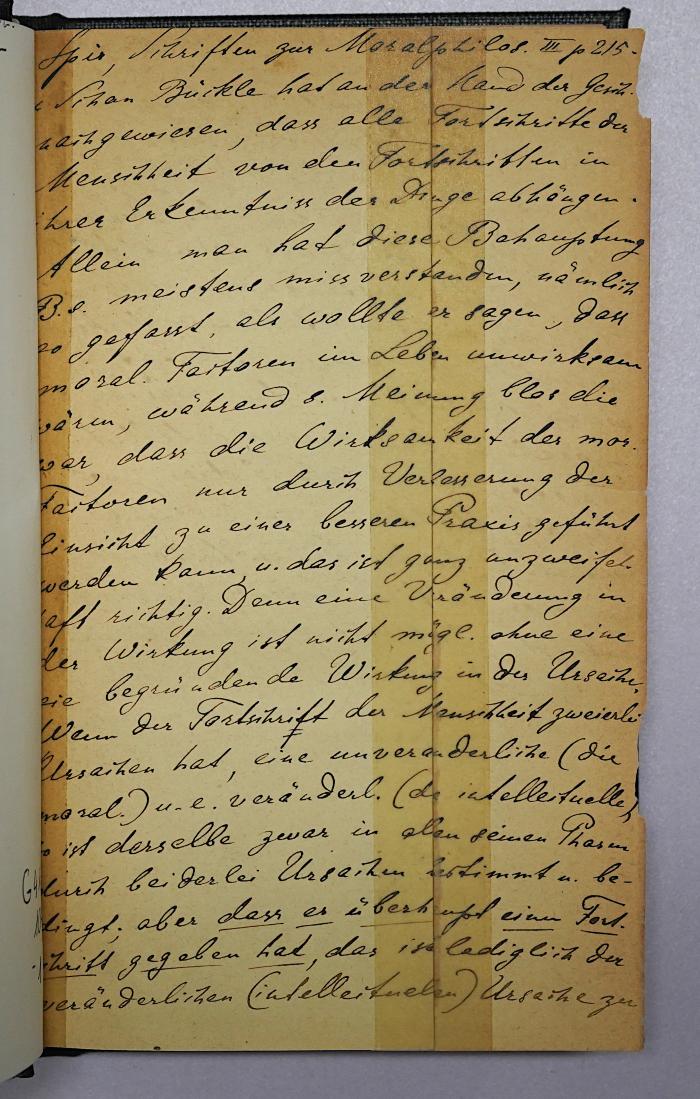 Spir, Schriften zur Moralphilos. III p 215-
Schon Bückle hat an der Hand der Gesch.
nachgewiesen, dass alle Fortschritte der
Menschheit von den Fortschritten in
ihrer Erkenntniss der Dinge abhängen.
Allein man hat diese Behauptung
B.s. meistens missverstanden, nämlich
so gefasst, als wollte er sagen, dass
moral. Factoren im Leben unwirksam
wären, während s. Meinung blos die
war, dass die Wirksamkeit der mor.
Factoren nur durch Verbesserung der
Einsicht zu einer besseren Praxis geführt
werden kann, u. das ist ganz unzweifel-
haft richtig. Denn eine Veränderung in
der Wirkung ist nicht mögl. ohne eine
sie begründende Wirkung in der Ursache.
Wenn der Fortschrift der Menschheit zweierlei
Ursachen hat, eine unveränderliche (die
moral.) u. e. veränderl. (de intellectuelle)
so ist derselbe zwar in allen seinen Phasen
durch beiderlei Ursachen bestimmt u. be-
dingt; aber dass er überhaupt einen Fort-
schritt gegeben hat, das ist lediglich der
veränderlichen (intellectuellen) Ursache zu
G4